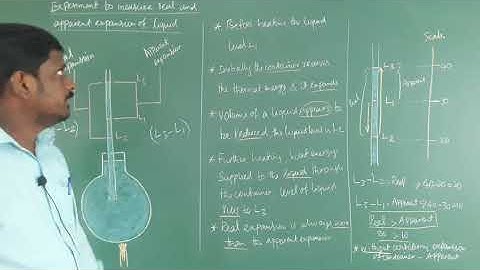 Experiment to measure real and
apparent expansion of liquid
expansion
Apparent
expansion
L3
L1
L2
(L3-L1)
* Before heating the liquid
level L1
* Initially the container receives
the thermal energy & it expands
* Volume of a liquid appears to
be reduced. the liquid level is L2
* Further heating, heat energy
supplied to the liquid through
the container level of liquid
rises to L3
* Real expansion is always more
than the apparent expansion
L3
L1
L2
Apparent
Scale
40
30
20
L3-L2 = Real
L3-L1 = Apparent
Real > Apparent
20 > 10
* without considering expansion
of container - Apparent